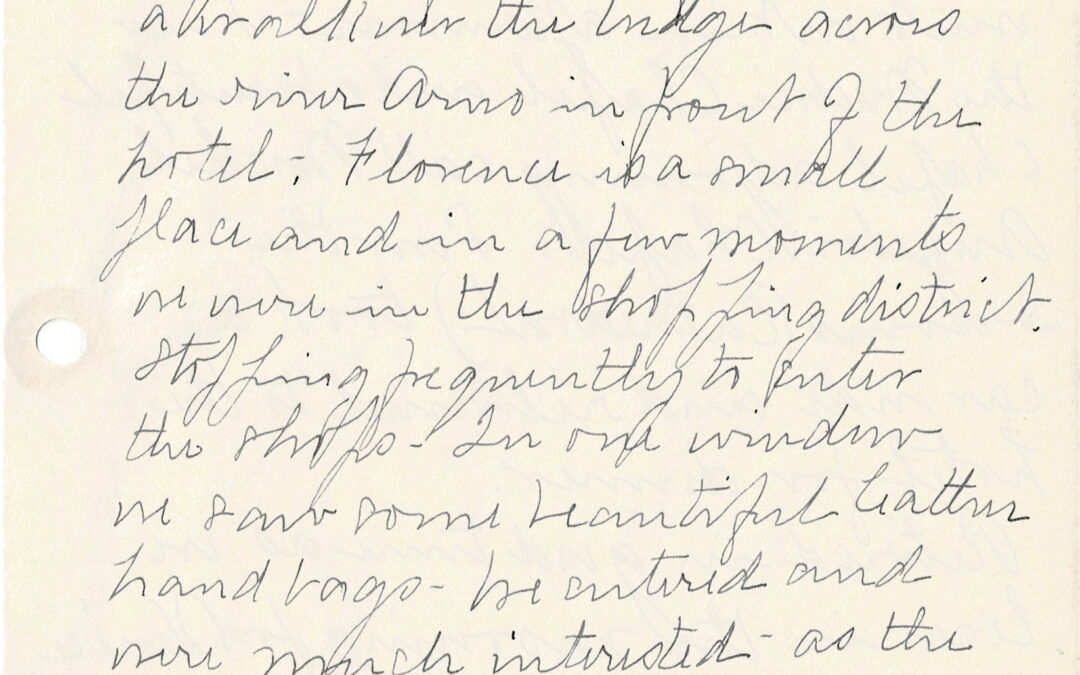 a walk over the bridge across
the river Arno in front of the
hotel - Florence is a small
place and in a few moments
we were in the shopping district.
stopping frequently to enter
the shops - In one window
we saw some beautiful leather
hand bags - We entered and
were much interested - as the